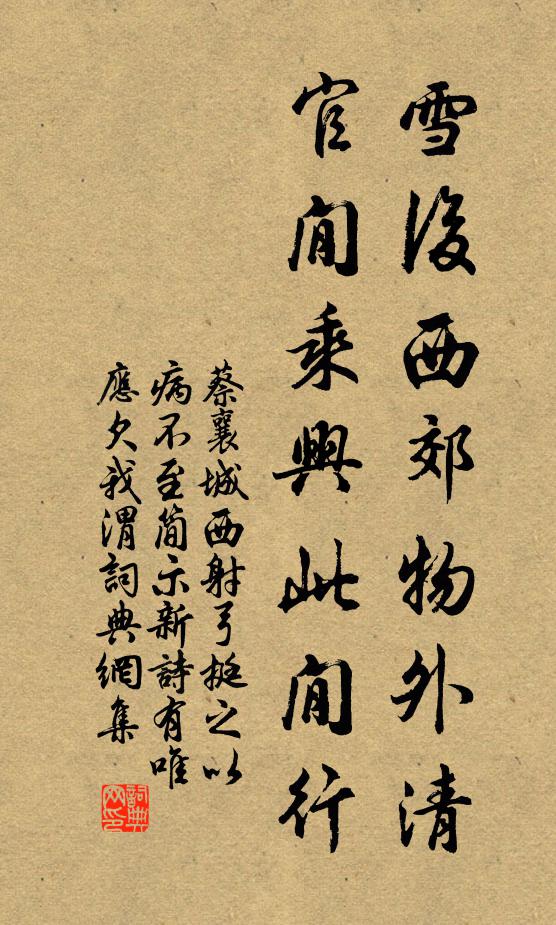 雪後西郊物外清
官閒乘興此閒行
蔡襄城西射弓挺之以
病不至簡示新詩有唯
應欠我渭詞典網集
詞典網印